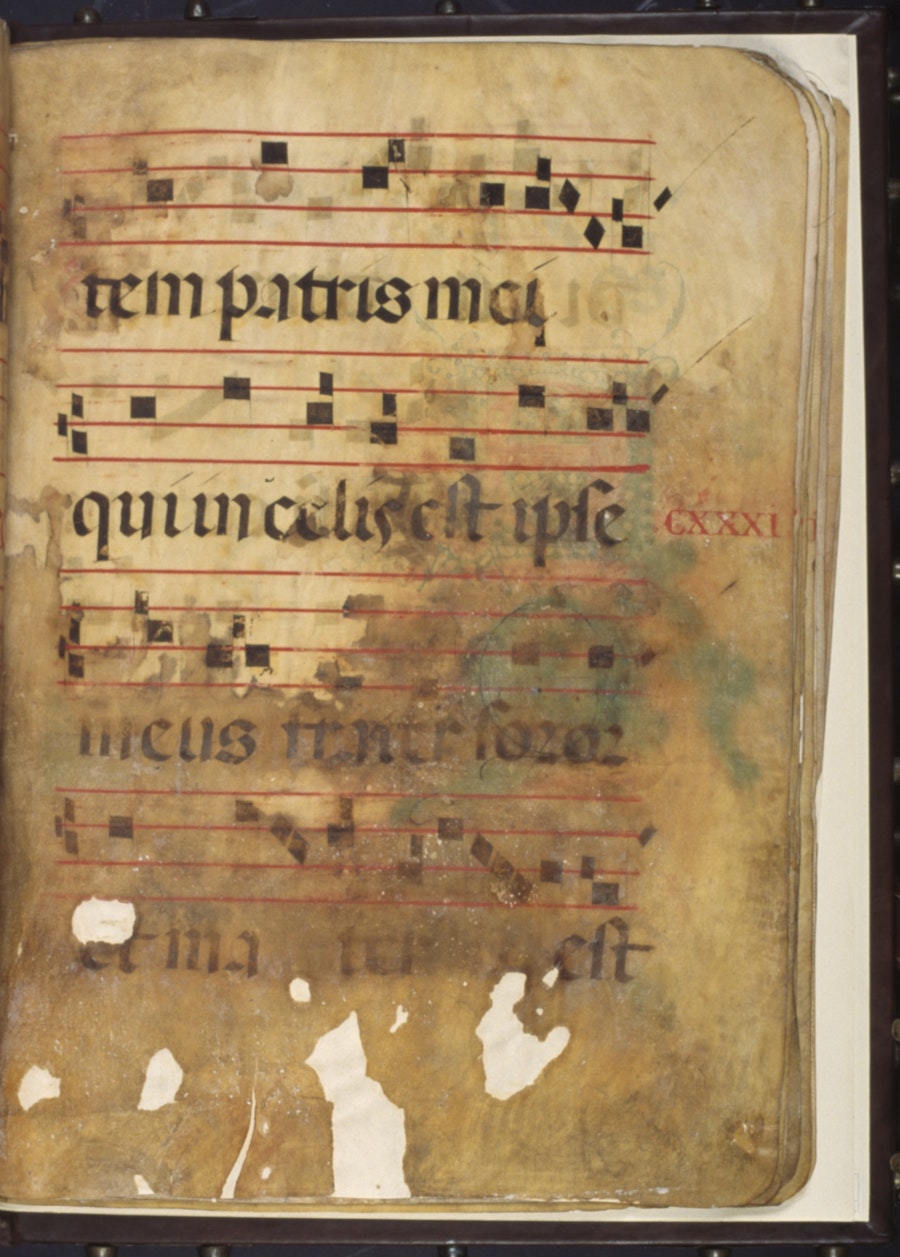 tem patris mei
qui in celis est ipse
CXXXI
meus frater soror
et ma ter est